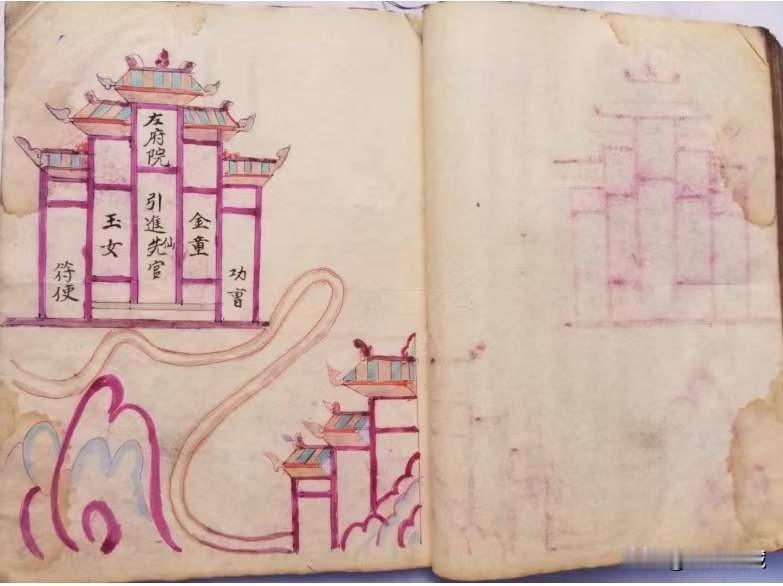 左府院
功曹
金童
引進先仙官
玉女
符便